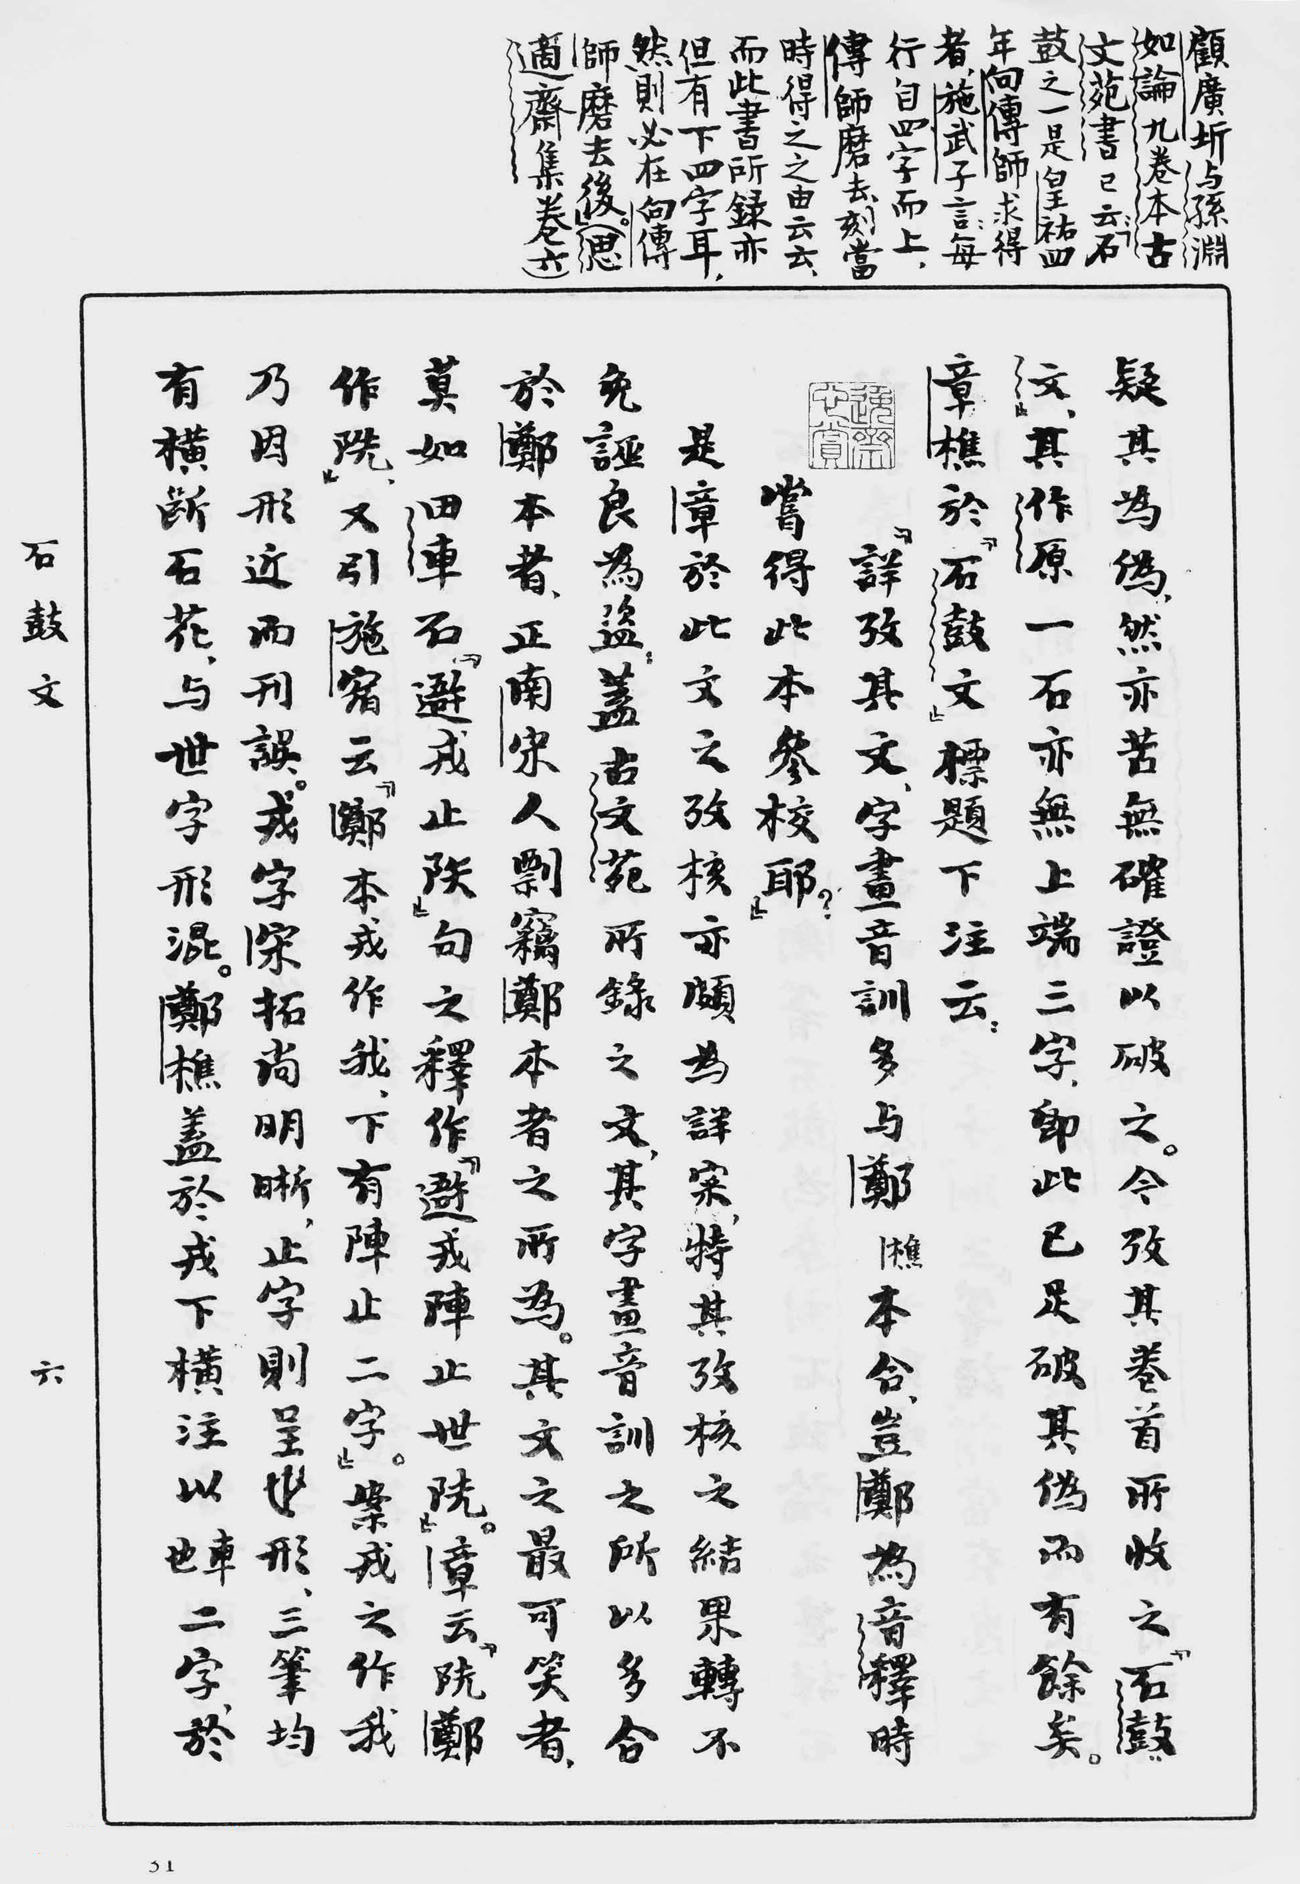 顧廣圻与孫淵
如論九卷本古
文苑書已云：「石
鼓之一是皇祐四
年向傅師求得
者，施武子言：每
行自四字而上，
傅師磨去，刻當
時得之之由云云，
而此書所錄亦
但有下四字耳，
然則必在向傅
師磨去後。」（思
適齋集卷六）
疑其為偽，然亦苦無確證以破之。今攷其卷首所收之「石鼓
文」，其作原一石亦無上端三字，即此已足破其偽而有餘矣。
章樵於「石鼓文」標題下注云：
「詳攷其文，字畫音訓多与鄭樵本合，豈鄭為音釋時
嘗得此本參校耶？」
是章於此文之攷核亦頗為詳宷，特其攷核之結果轉不
免誣良為盜：蓋古文苑所錄之文，其字畫音訓之所以多合
於鄭本者，正南宋人剽竊鄭本者之所為。其文之最可笑者，
莫如田車石「避戎止陝」句之釋作「避戎陣止世阬」。章云「阬鄭
作阬」，又引施宿云「鄭本戎作我，下有陣止二字」。案戎之作我
乃因形近而刊誤。戎字宋拓尚明晰，止字則呈形，三筆均
有橫斷石花，与世字形混。鄭樵蓋於戎下橫注以車也二字，於
石鼓文
六
31